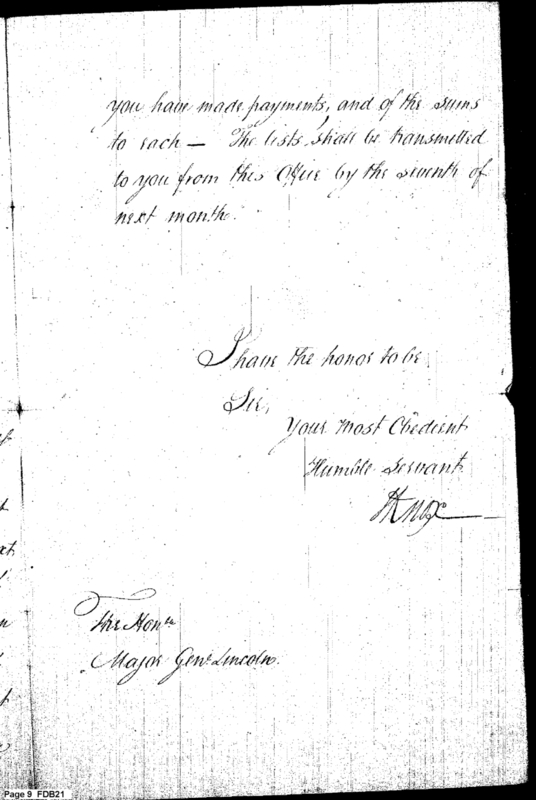 you have made payments, and of the sums
to each — The lists shall be transmitted
to you from this Office by the seventh of
next month.
I have the honor to be,
Sir,
Your most Obedient
Humble Servant
HKnox
The Honle
Major Genl Lincoln.
Page 9 FDB21